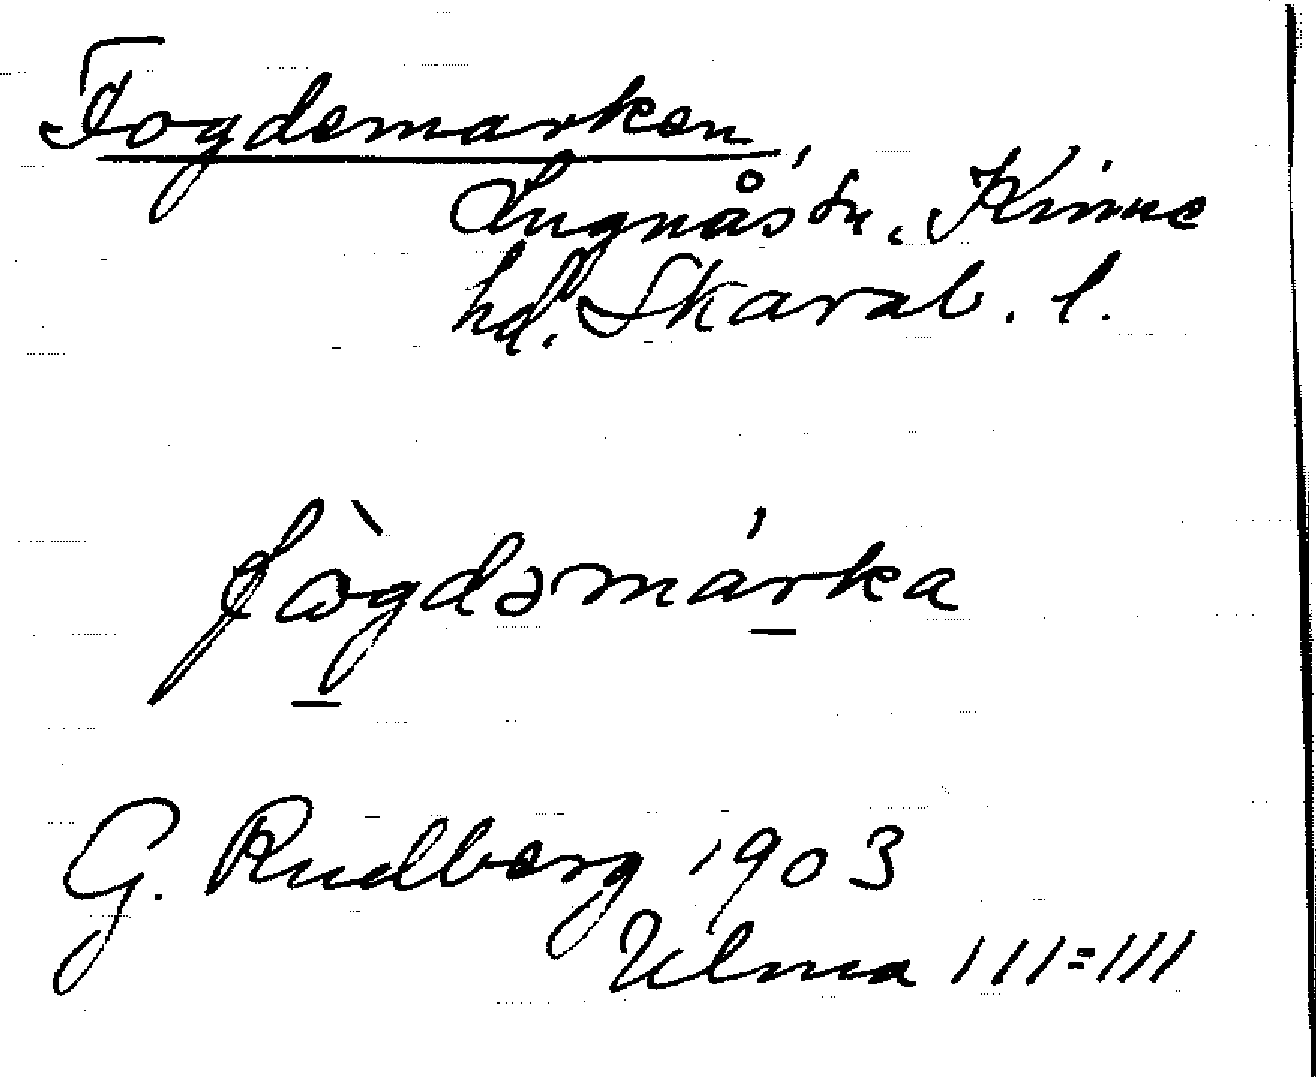 Fogdemarken,
Lugnås sn., Kinne
hd. Skarab. l.
fògdəmárka
G. Rudberg 1903
Ulma 111:111